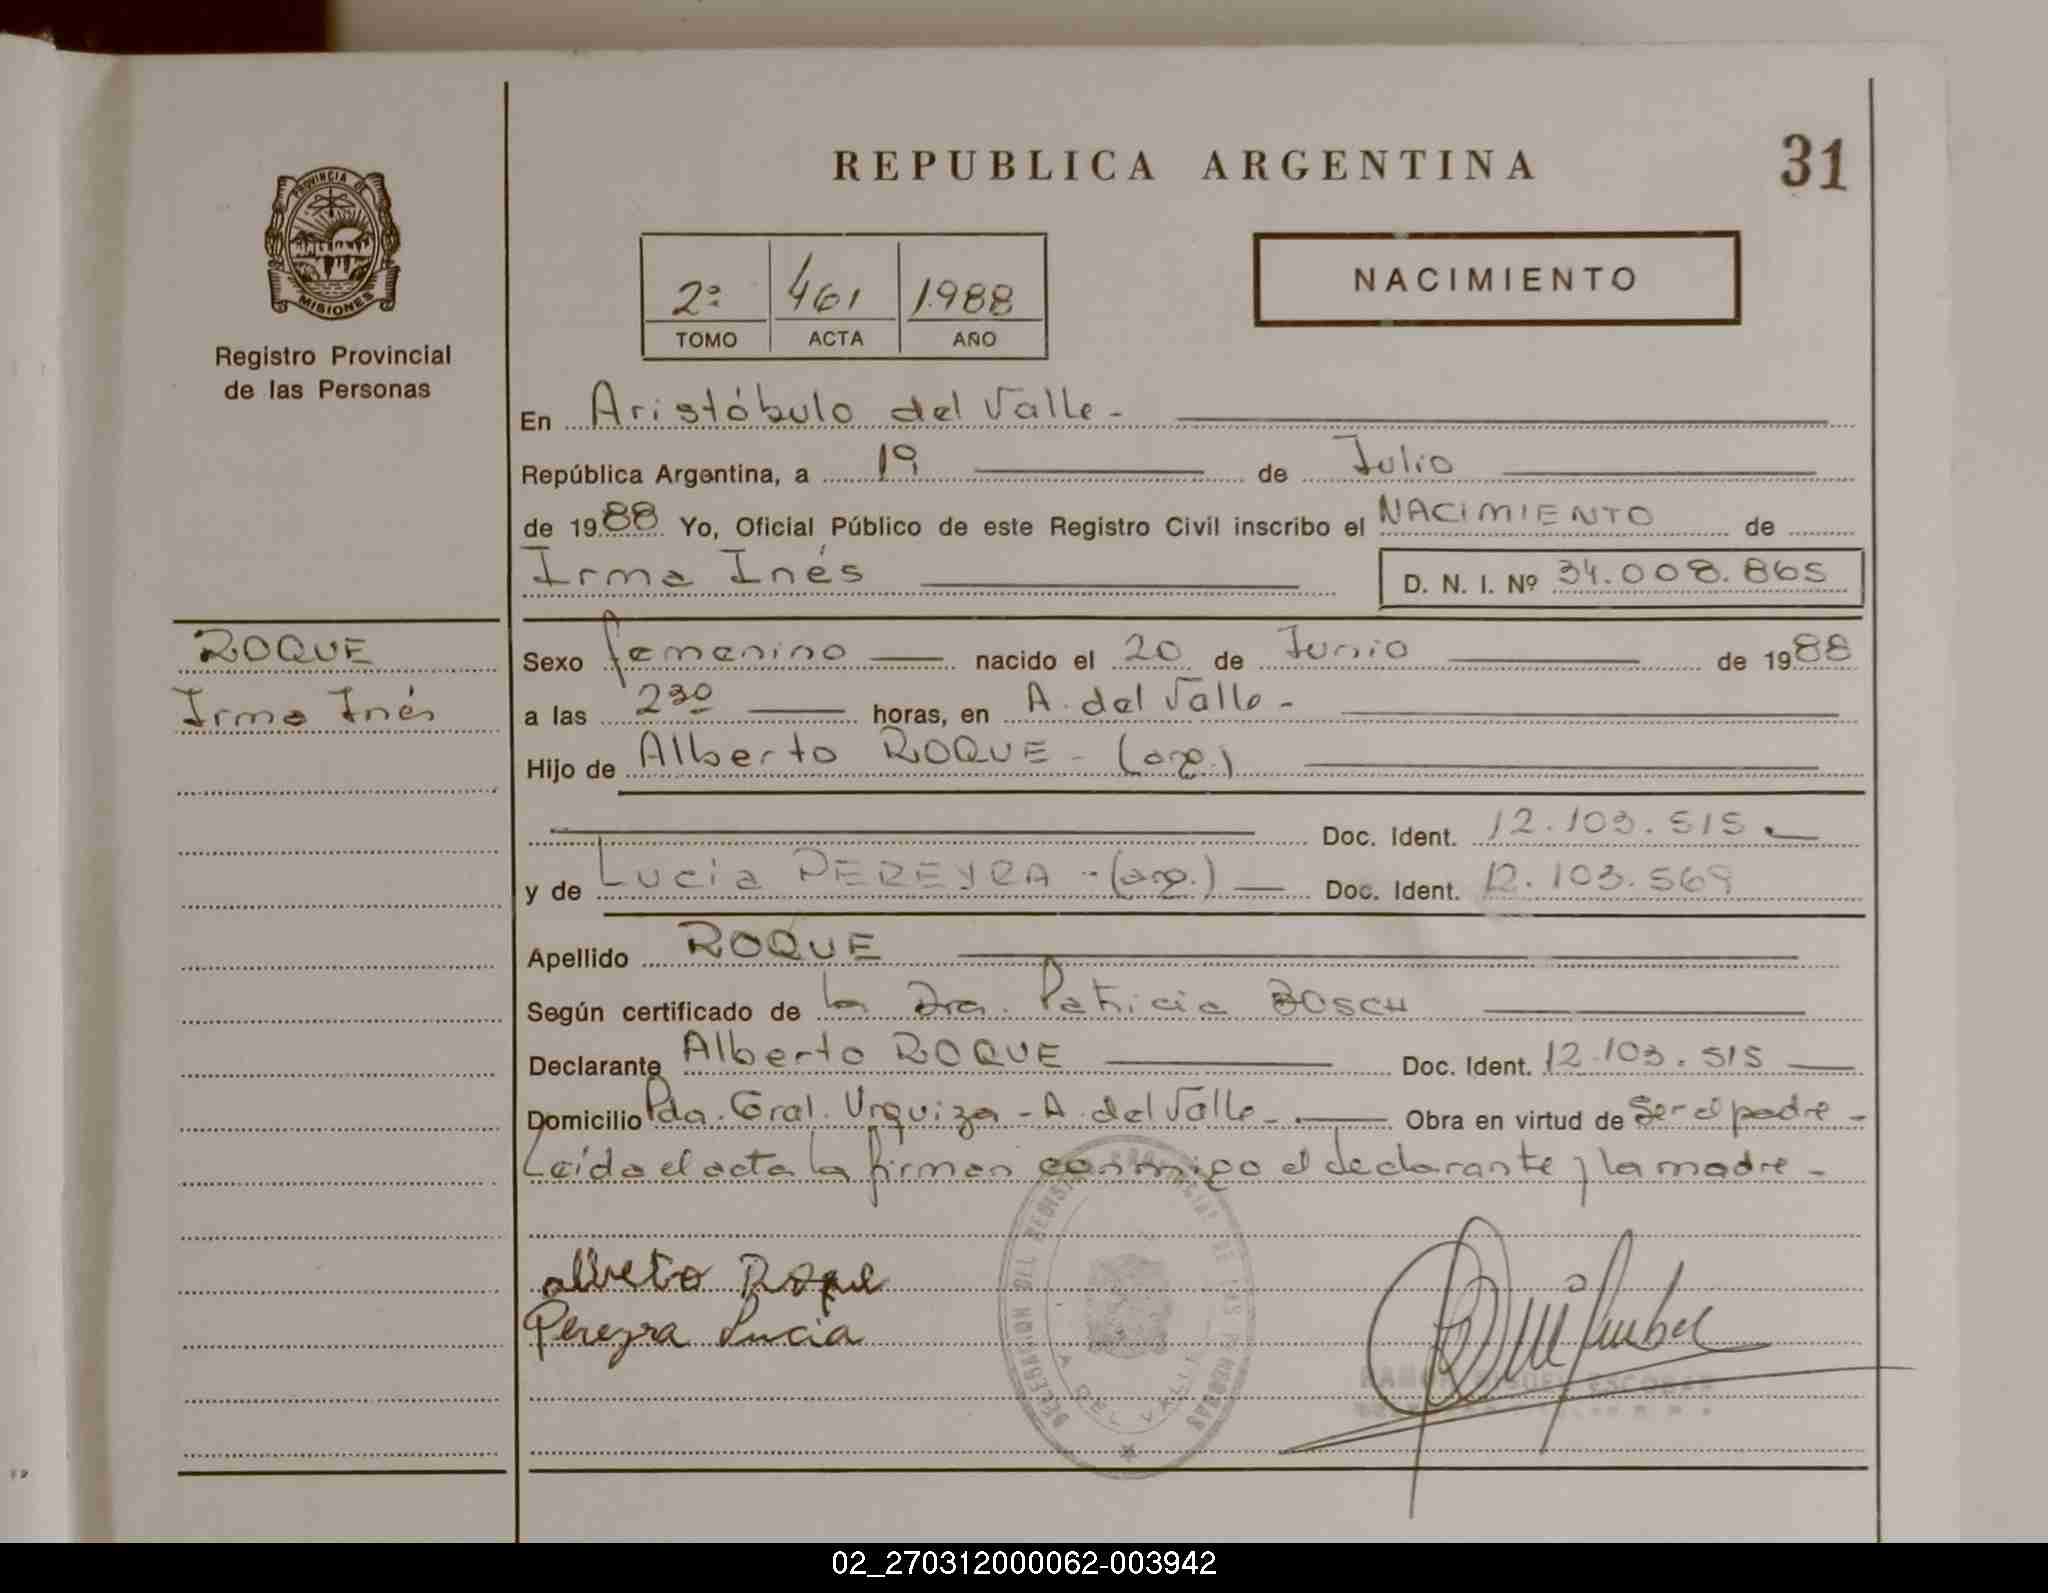 REPUBLICA ARGENTINA
31
PROVINCIA DE
MISIONES
Registro Provincial
de las Personas
2º 461 1.988
TOMO ACTA AÑO
NACIMIENTO
En Aristóbulo del Valle -
República Argentina, a 19 de Julio
de 1988 Yo, Oficial Público de este Registro Civil inscribo el NACIMIENTO de
Irma Inés
D. N. I. Nº 34.008.865
ROQUE
Irma Inés
Sexo femenino nacido el 20 de Junio de 1988
a las 2 30 horas, en A. del Valle -
Hijo de Alberto ROQUE - (arg.)
Doc. Ident. 12.103.515
y de Lucia PEREYRA - (arg.) Doc. Ident. 12.103.569
Apellido ROQUE
Según certificado de la Dra. Patricia BOSCH
Declarante Alberto ROQUE Doc. Ident. 12.103.515
Domicilio Pda. Gral. Urquiza - A. del Valle - Obra en virtud de ser el padre -
Leída el acta la firman conmigo el declarante y la madre -
alberto Roque
Pereyra Lucia
DELEGACION DEL REGISTRO PROVINCIAL DE LAS PERSONAS
A. DEL VALLE
ESCOBAR
02_270312000062-003942